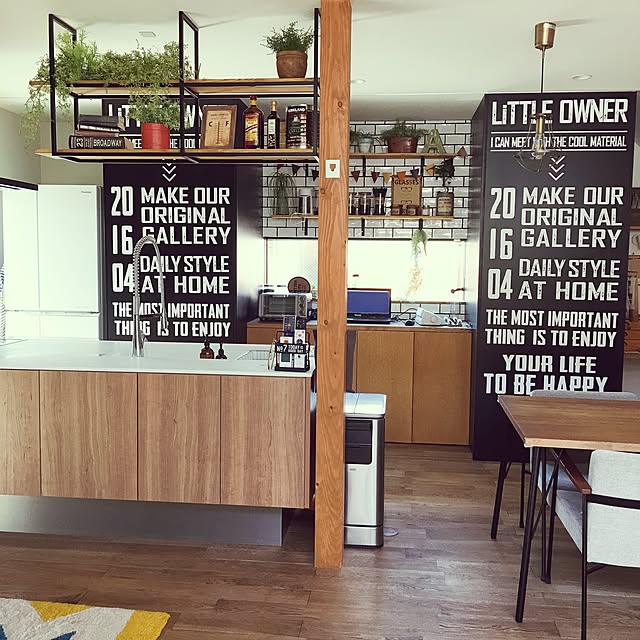 LiTTLE
MAKE OUR
20 ORIGINAL
16 GALLERY
04 DAILY STYLE
AT HOME
THE MOST IMPORTANT
THING IS TO ENJOY
BROADWAY
GLASSES
A
LiTTLE OWNER
I CAN MEET WITH THE COOL MATERIAL
MAKE OUR
20 ORIGINAL
16 GALLERY
04 DAILY STYLE
AT HOME
THE MOST IMPORTANT
THING IS TO ENJOY
YOUR LIFE
TO BE HAPPY
No7